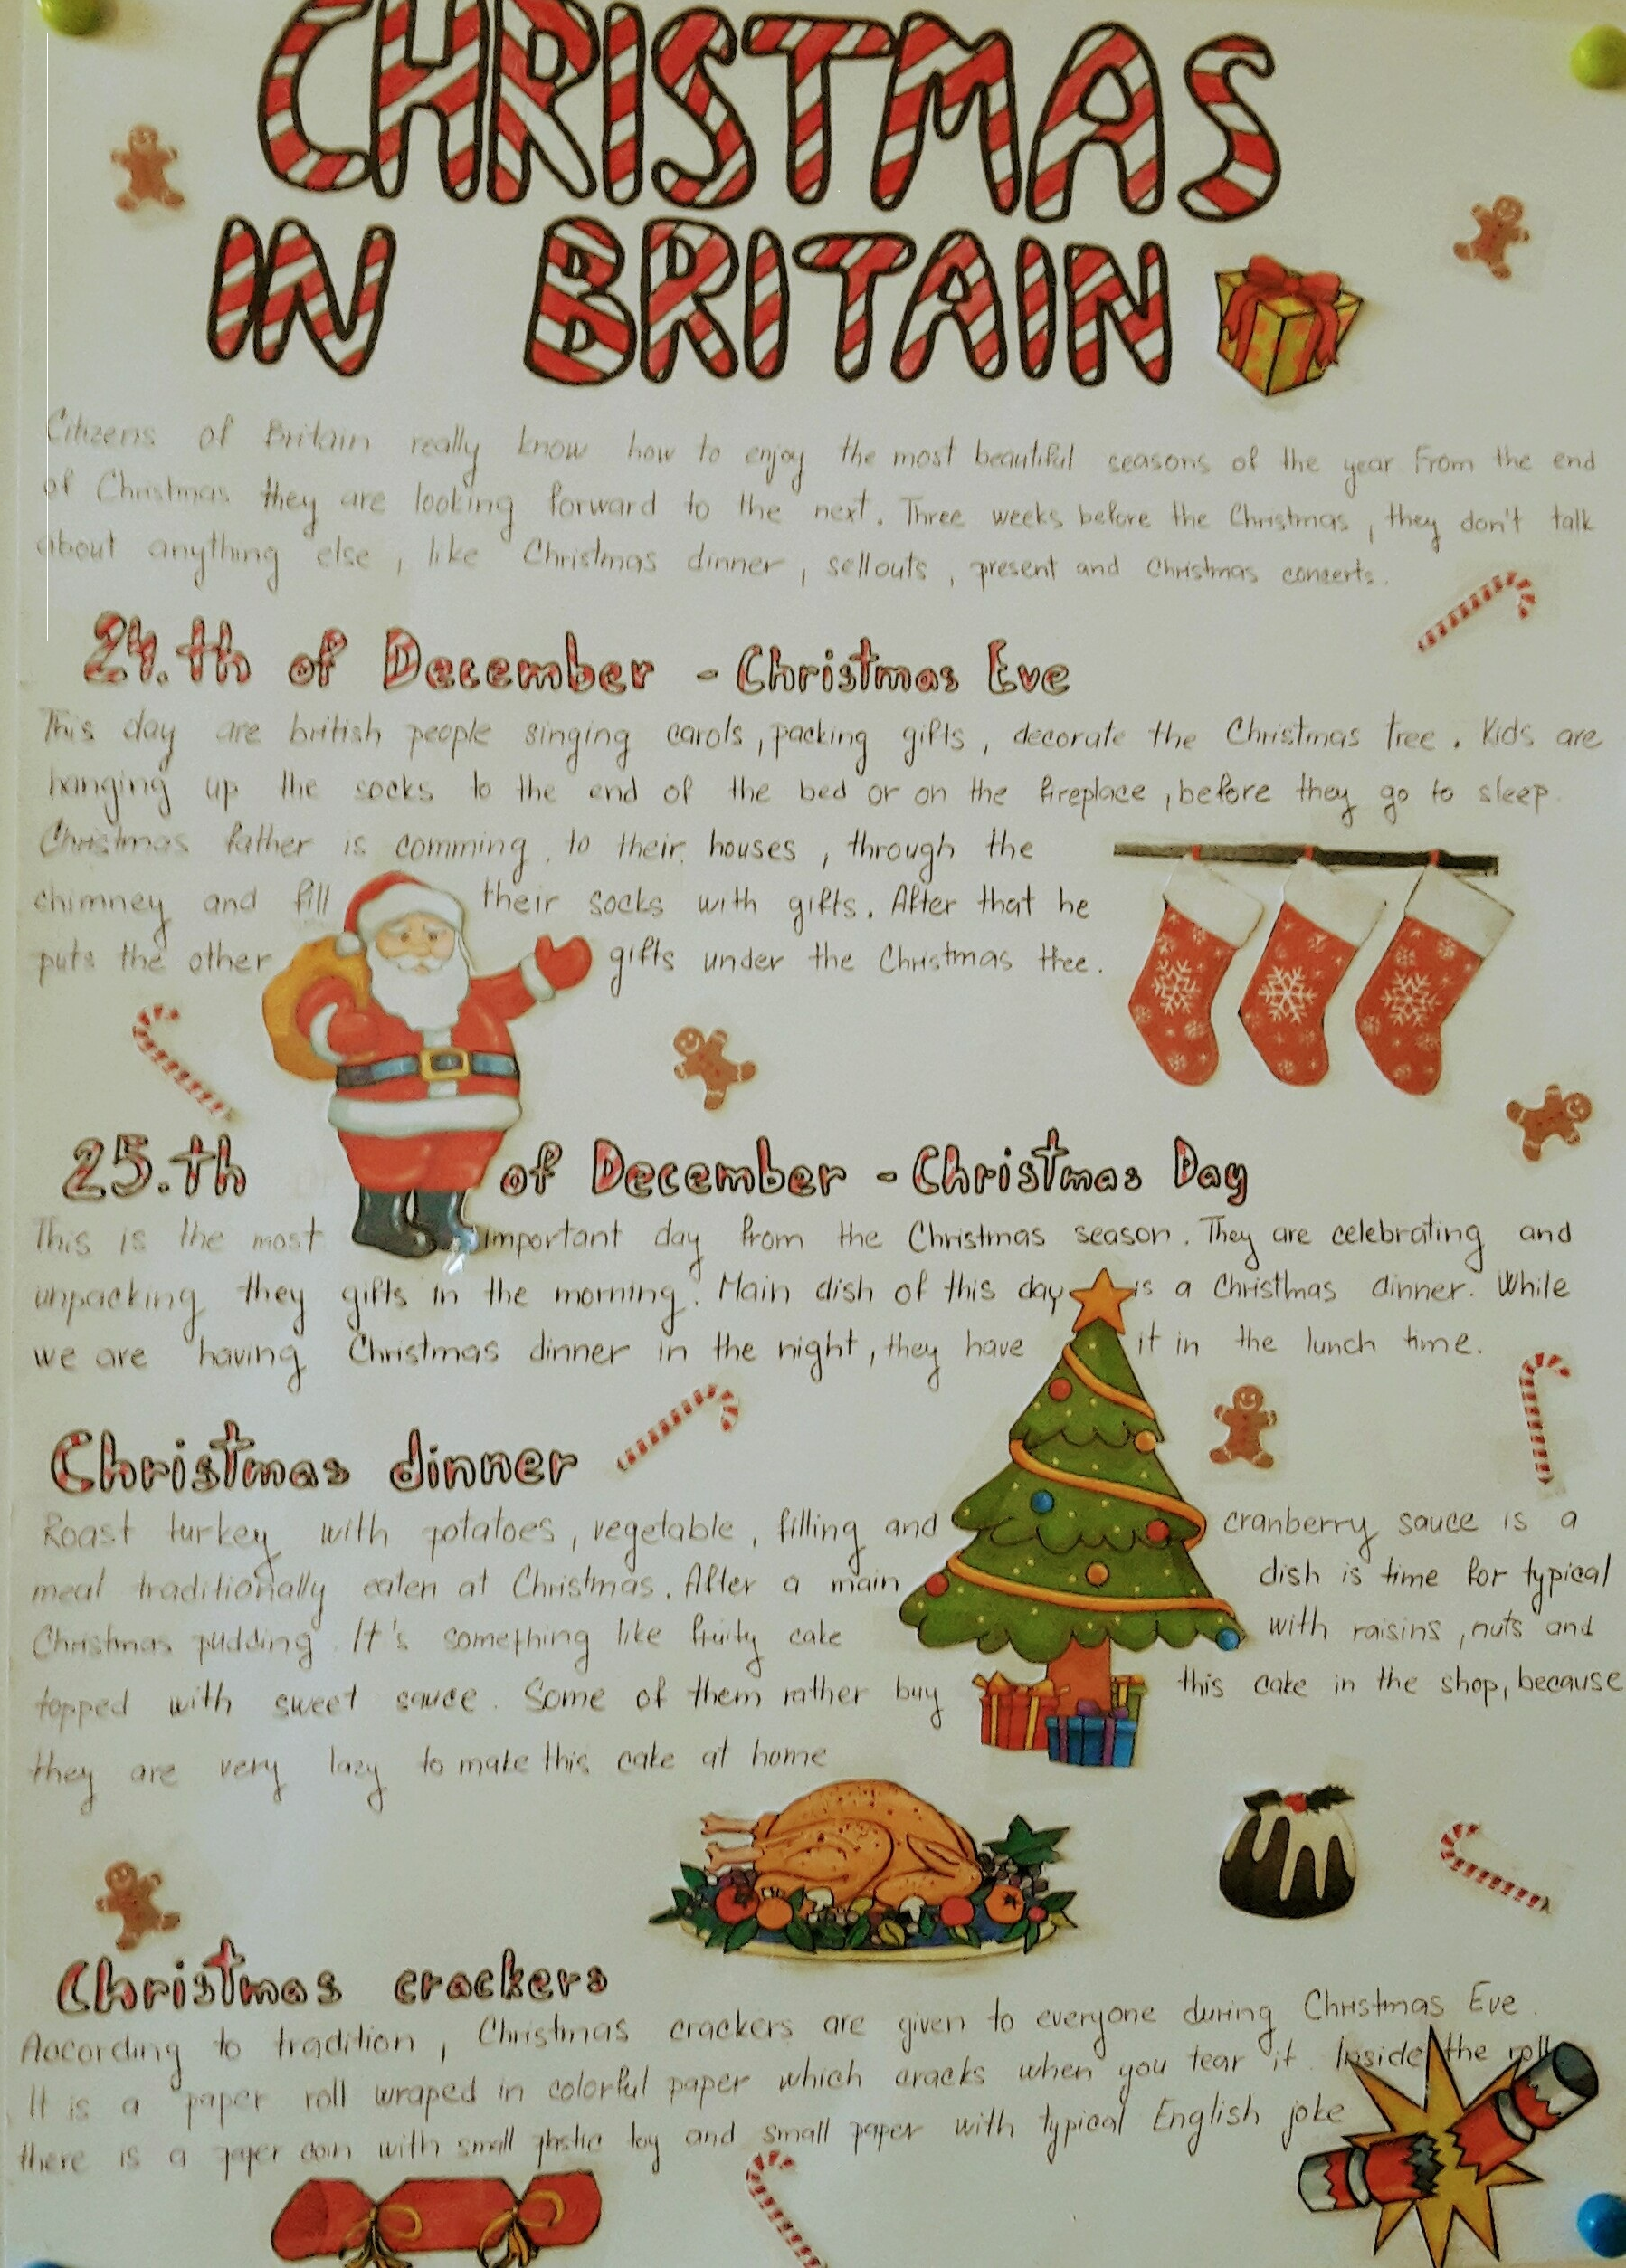 CHRISTMAS
IN BRITAIN
Citizens of Britain really know how to enjoy the most beautiful seasons of the year From the end
of Christmas they are looking forward to the next. Three weeks before the Christmas, they don't talk
about anything else, like Christmas dinner, sellouts, present and Christmas concerts.
24.th of December - Christmas Eve
This day are british people singing carols, packing gifts, decorate the Christmas tree. Kids are
hanging up the socks to the end of the bed or on the fireplace, before they go to sleep.
Christmas father is comming to their houses, through the
chimney and fill their socks with gifts. After that he
puts the other gifts under the Christmas tree.
25.th of December - Christmas Day
This is the most important day from the Christmas season. They are celebrating and
unpacking they gifts in the morning. Main dish of this day is a Christmas dinner. While
we are having Christmas dinner in the night, they have it in the lunch time.
Christmas dinner
Roast turkey with potatoes, vegetable, filling and cranberry sauce is a
meal traditionally eaten at Christmas. After a main dish is time for typical
Christmas pudding. It's something like fruity cake with raisins, nuts and
topped with sweet sauce. Some of them rather buy this cake in the shop, because
they are very lazy to make this cake at home
Christmas crackers
According to tradition, Christmas crackers are given to everyone during Christmas Eve.
It is a paper roll wraped in colorful paper which cracks when you tear it. Inside the roll
there is a paper coin with small plastic toy and small paper with typical English joke